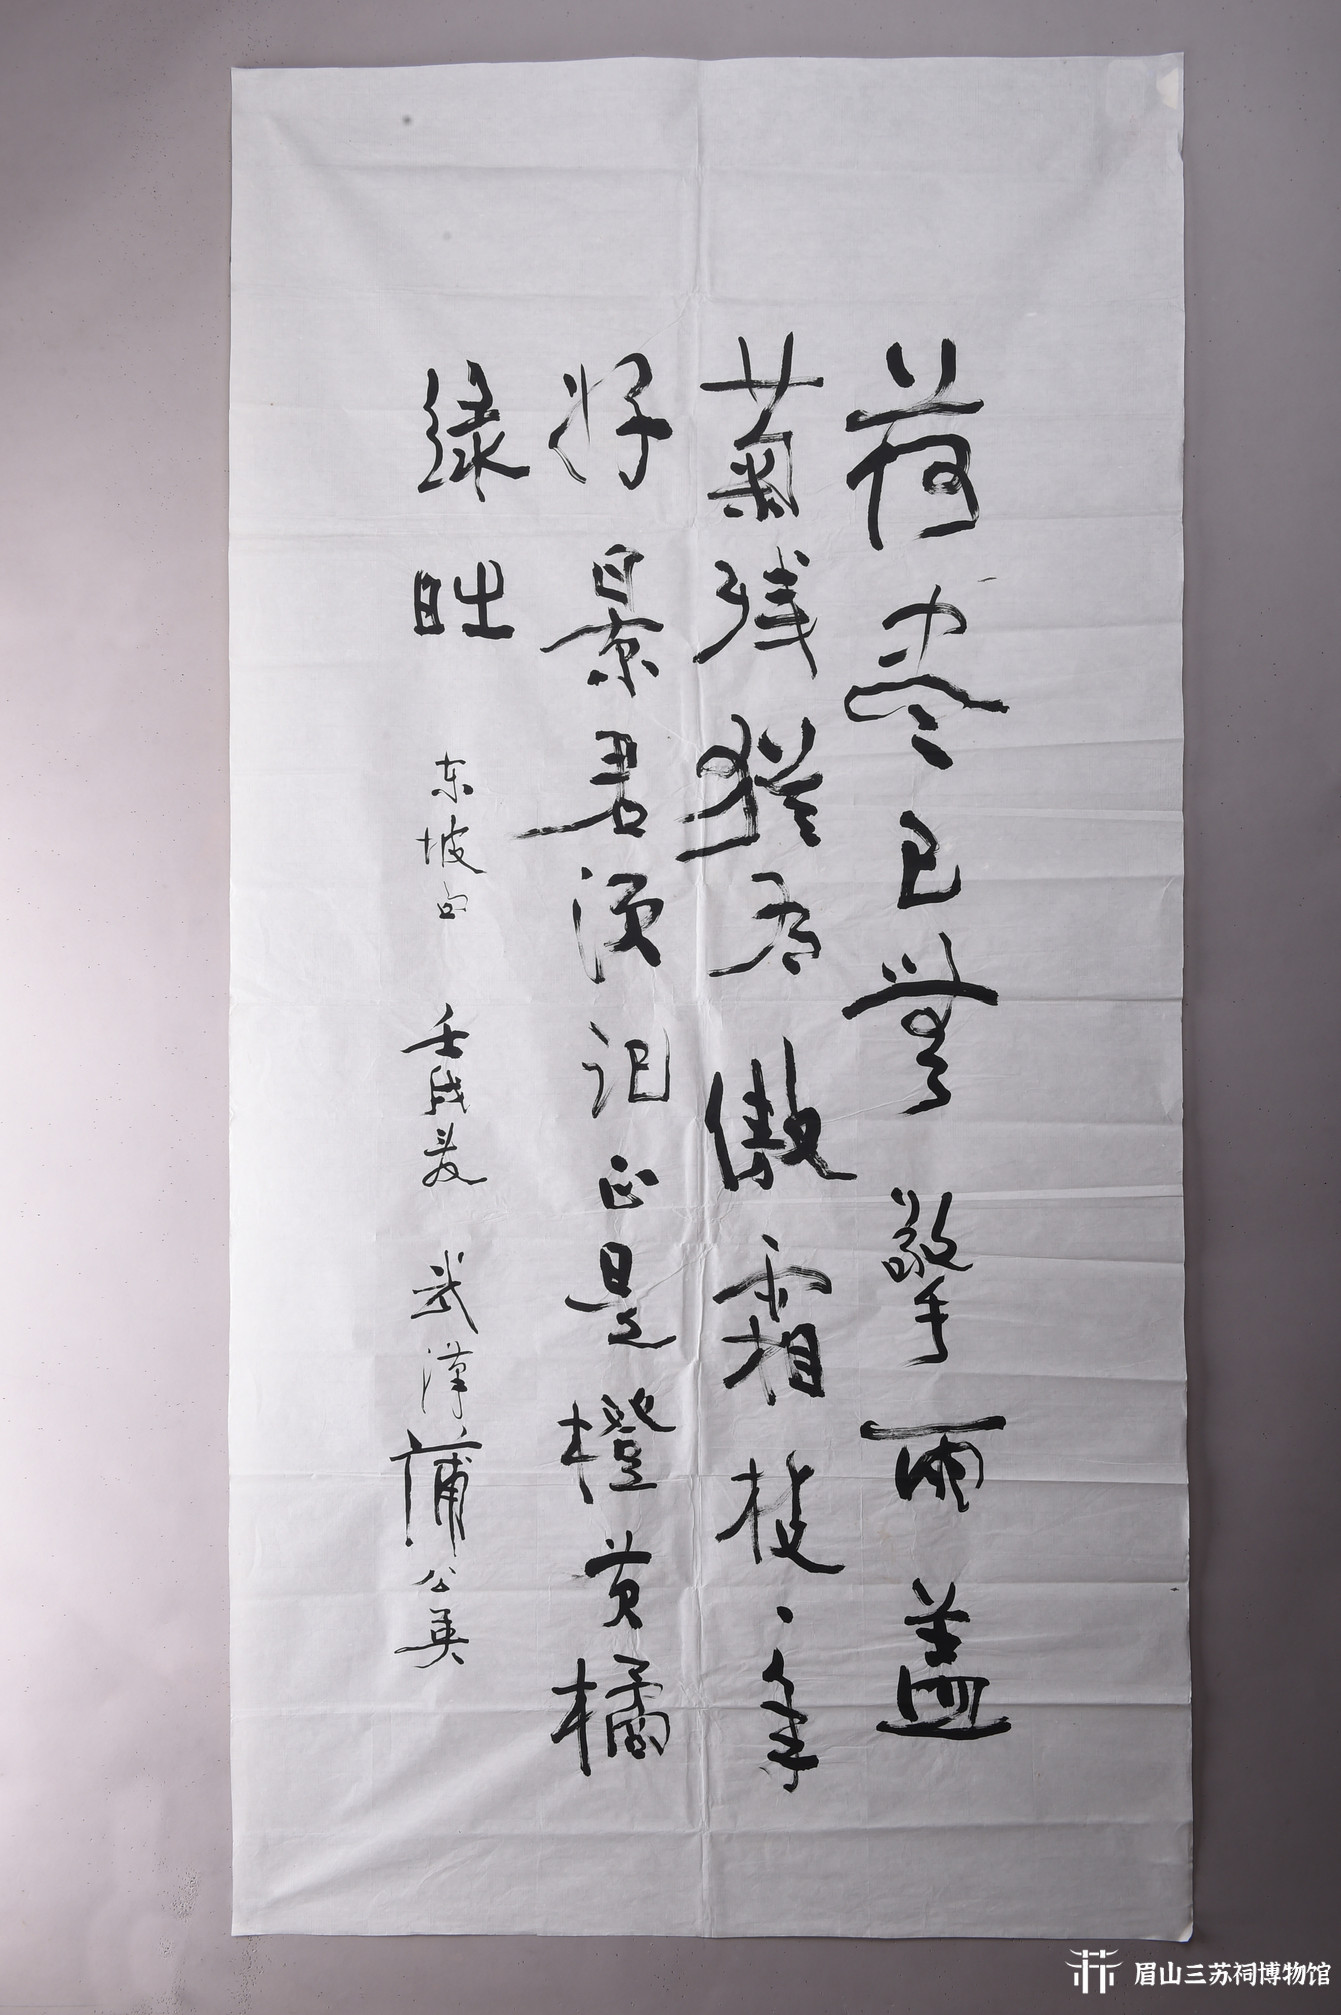 荷尽已無擎雨盖
菊残猶有傲霜枝一年
好景君須记正是橙黄橘
绿時 东坡句 壬戌夏 武漢蒲公英
眉山三苏祠博物馆